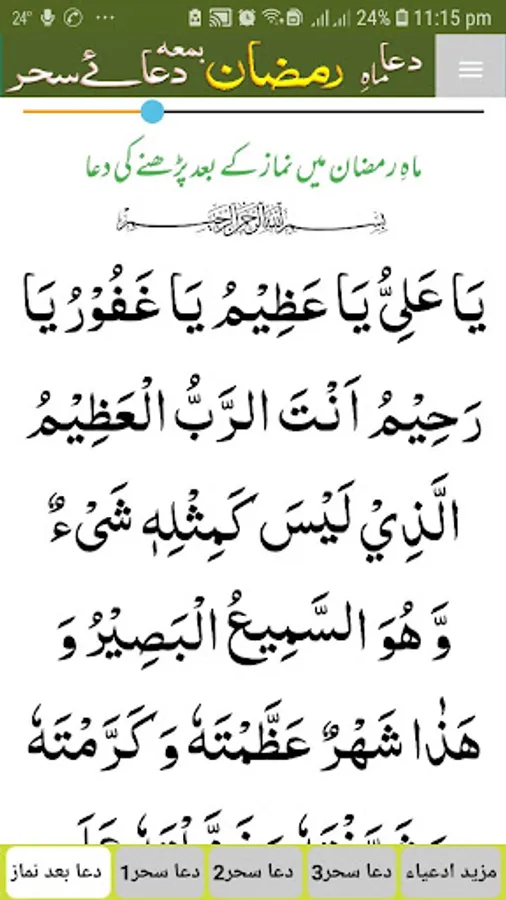 24° 24% 11:15 pm
دعا ماہِ رمضان بمعہ دعائے سحر
ماہِ رمضان میں نماز کے بعد پڑھنے کی دعا
بِسْمِ اللهِ الرَّحْمٰنِ الرَّحِيْمِ
يَا عَلِيُّ يَا عَظِيْمُ يَا غَفُوْرُ يَا
رَحِيْمُ اَنْتَ الرَّبُّ الْعَظِيْمُ
الَّذِيْ لَيْسَ كَمِثْلِهٖ شَیْءٌ
وَّ هُوَ السَّمِيْعُ الْبَصِيْرُ وَ
هَذٰا شَهْرٌ عَظَّمْتَهٗ وَ كَرَّمْتَهٗ
دعا بعد نماز دعا سحر1 دعا سحر2 دعا سحر3 مزید ادعیاء